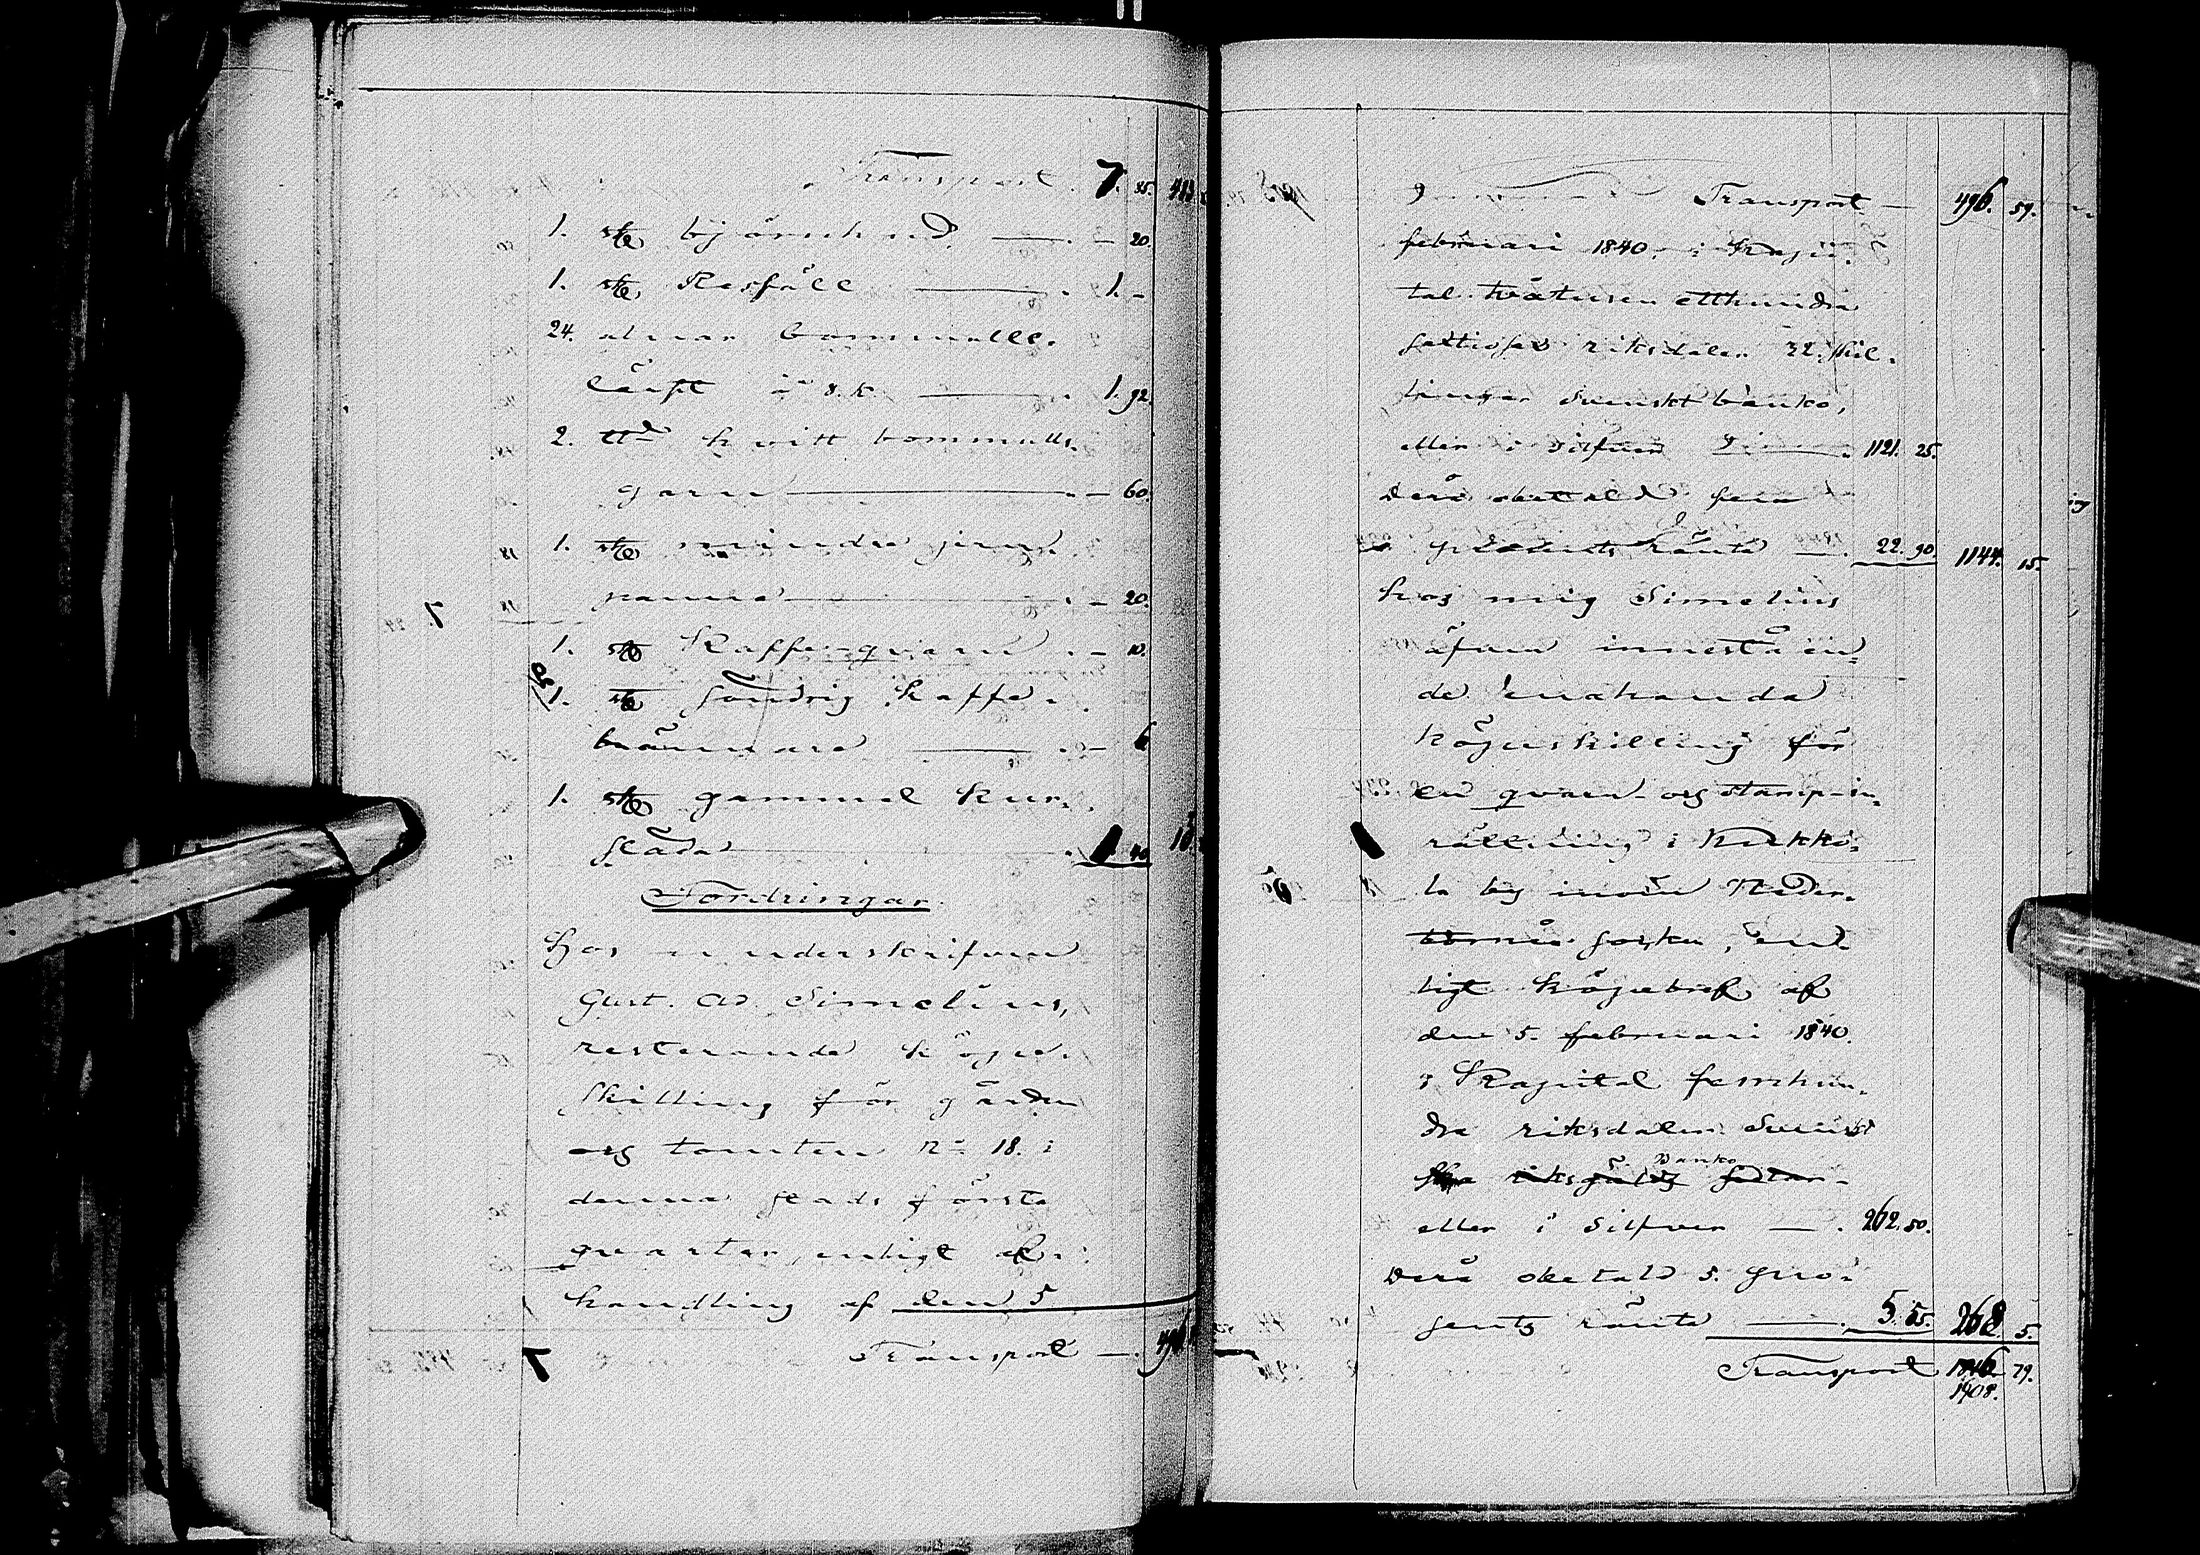 Transport 7. 85. 483
1. st. björnhud — 20.
1. st. Resfäll 1. —
24. alnar bommulls-
lärft à 8. k. 1. 92.
2. ℔ hvitt bommulls-
garn — 60.
1. st. mindre jern-
panna — 20.
1. st. Kaffe-qvarn — 10.
1. st. söndrig kaffe-
brännare — 6
1. st. gammal kur-
släda 1 40 13
Fordringar
Hos underskrifven
Gust. Ad. Simelius,
resterande köpe-
skilling för gården
och tomten No 18. i
denna stads första
qvarter, enligt af-
handling af den 5
Transport 496
Transport 496. 59.
februari 1840. i Kapi-
tal tvåtusen etthundra
sextiofem riksdaler 32. skil-
lingar svenskt banko,
eller i silfver 1121. 25.
Derå obetald fem
procents ränta 22. 90. 1144. 15.
hos mig Simelius
äfven innestående
de enahanda
köpeskilling för
en qvarn- och stamp-in-
rättning i Kukko-
la by inom Neder-
torneå socken, en-
ligt köpebref af
den 5. februari 1840.
i Kapital femhun-
dra riksdaler Svensk
Banko
eller i silfver 262. 50.
Derå obetald 5. pro-
cents ränta 5. 55. 268 5.
Transport 79.
1908.